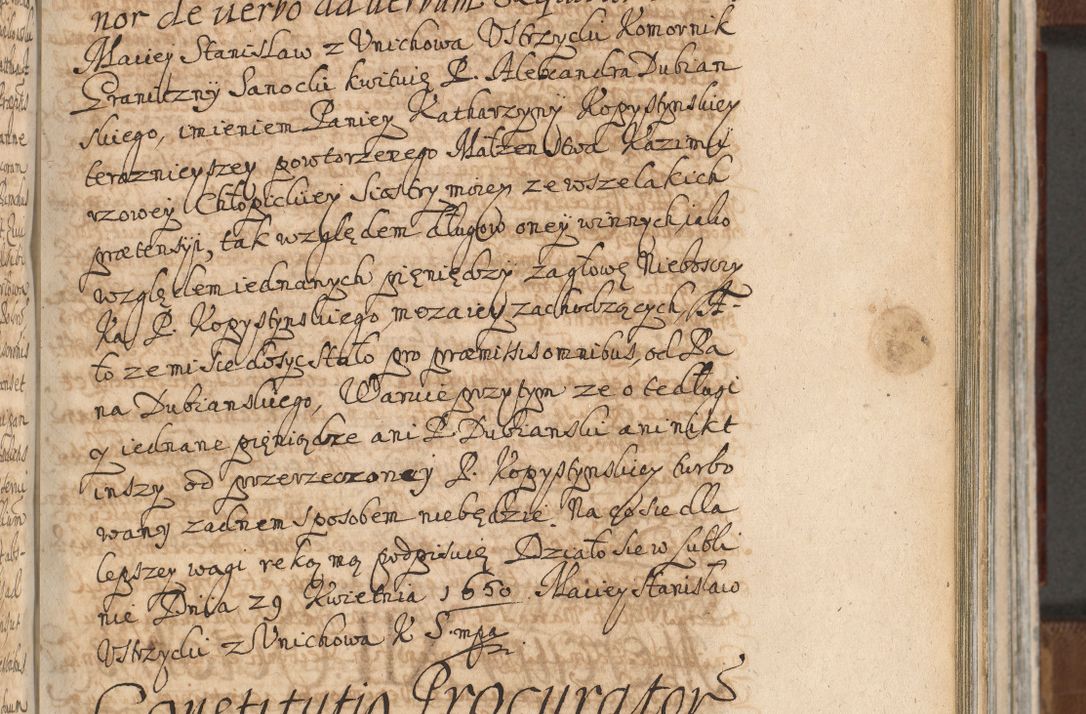 nor de verbo ad verbum
Maciey Stanislaw z Unichowa Ustrzycki Komornik
Graniczny Sanocki kwituię P. Alexandra Dubian
skiego, imieniem Paniey Katharzyny Kopystynskiey
teraznieyszey powtorzenego Małzenstwa Kazimi
rzowey Chłopickiey Siostry moiey ze wszelakich
prætensyi, tak względem długow oney winnych, iako
względem iednanych pieniędzy za głowę Nieboszy
ka P. Kopystynskiego, mezaiey zachodzących, A
to ze mi sie dosyc stało pro præmissis omnibus, od Pa
na Dubianskiego, Waruie przytym ze o te długi
y iednane pięniądze ani P. Dubianski ani nikt
inszy od przerzeczoney P. Kopystynskiey turbo
wany zadnem sposobem niebędzie. Na co sie dla
lepszey wagi ręką mą podpisuię Działo sie w Lubli
nie Dnia 29 Kwietnia 1650 Maciey Stanislaw
Ustrzycki z Unichowa K S. mpa
Constitutio Procurator